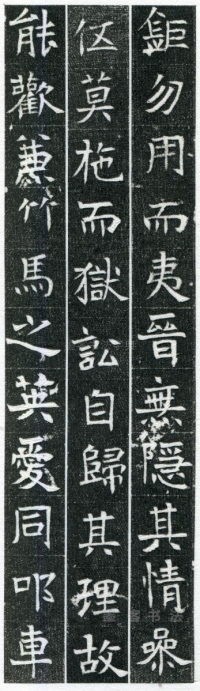 鉅勿用而夷晉無隱其情參
伍莫施而獄訟自歸其理故
能歡蒹竹馬之英愛同叩車